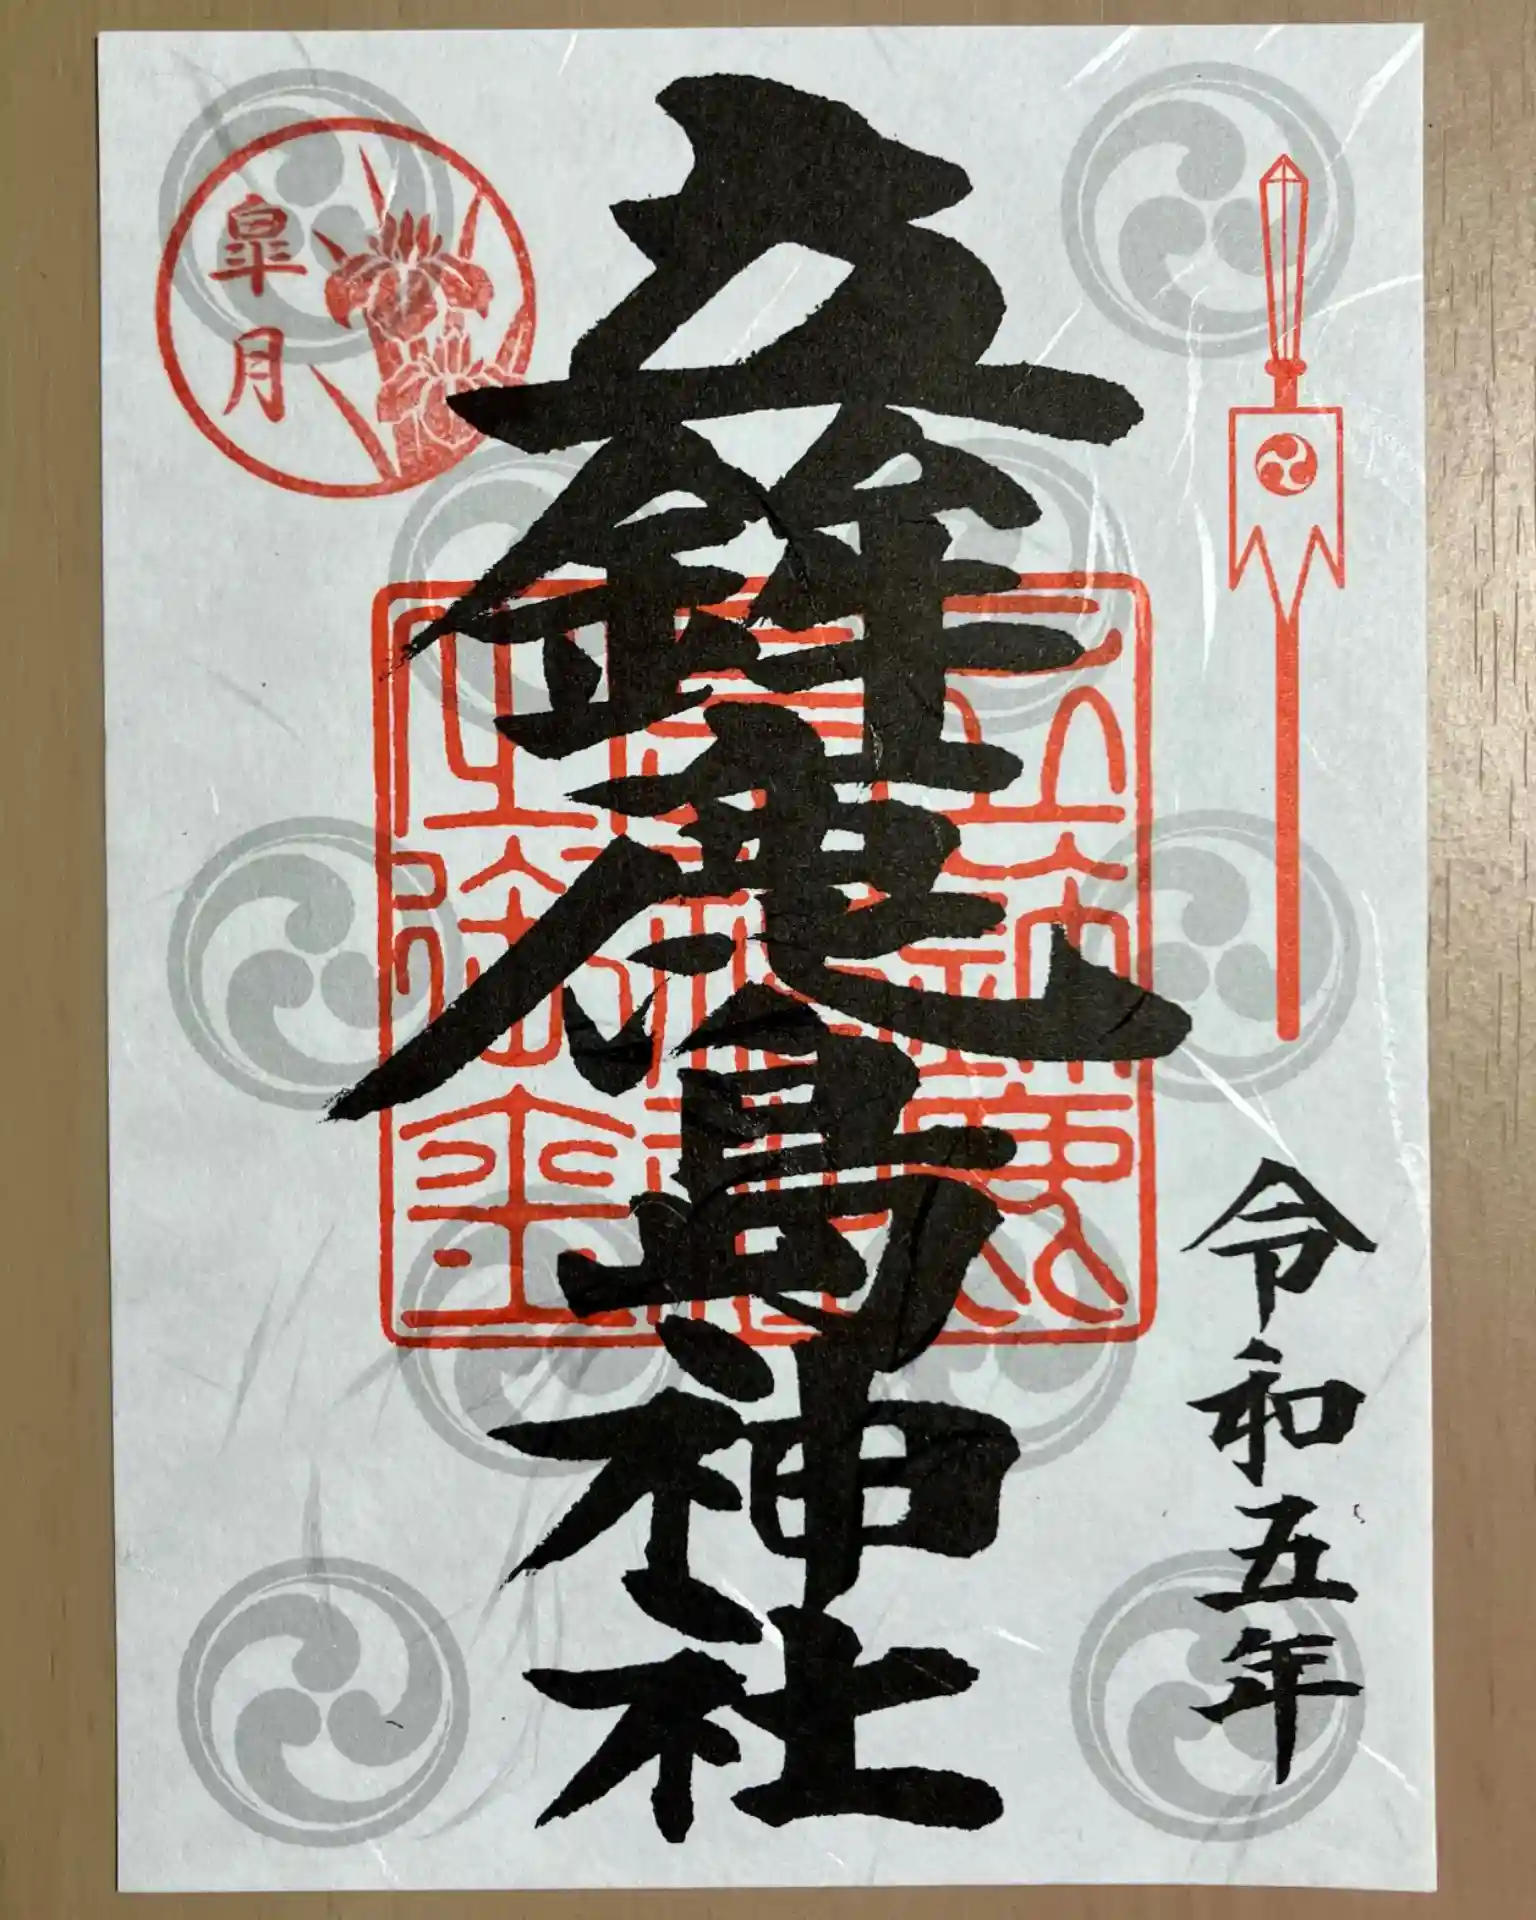 令和五年
立鉾鹿島神社
皐月